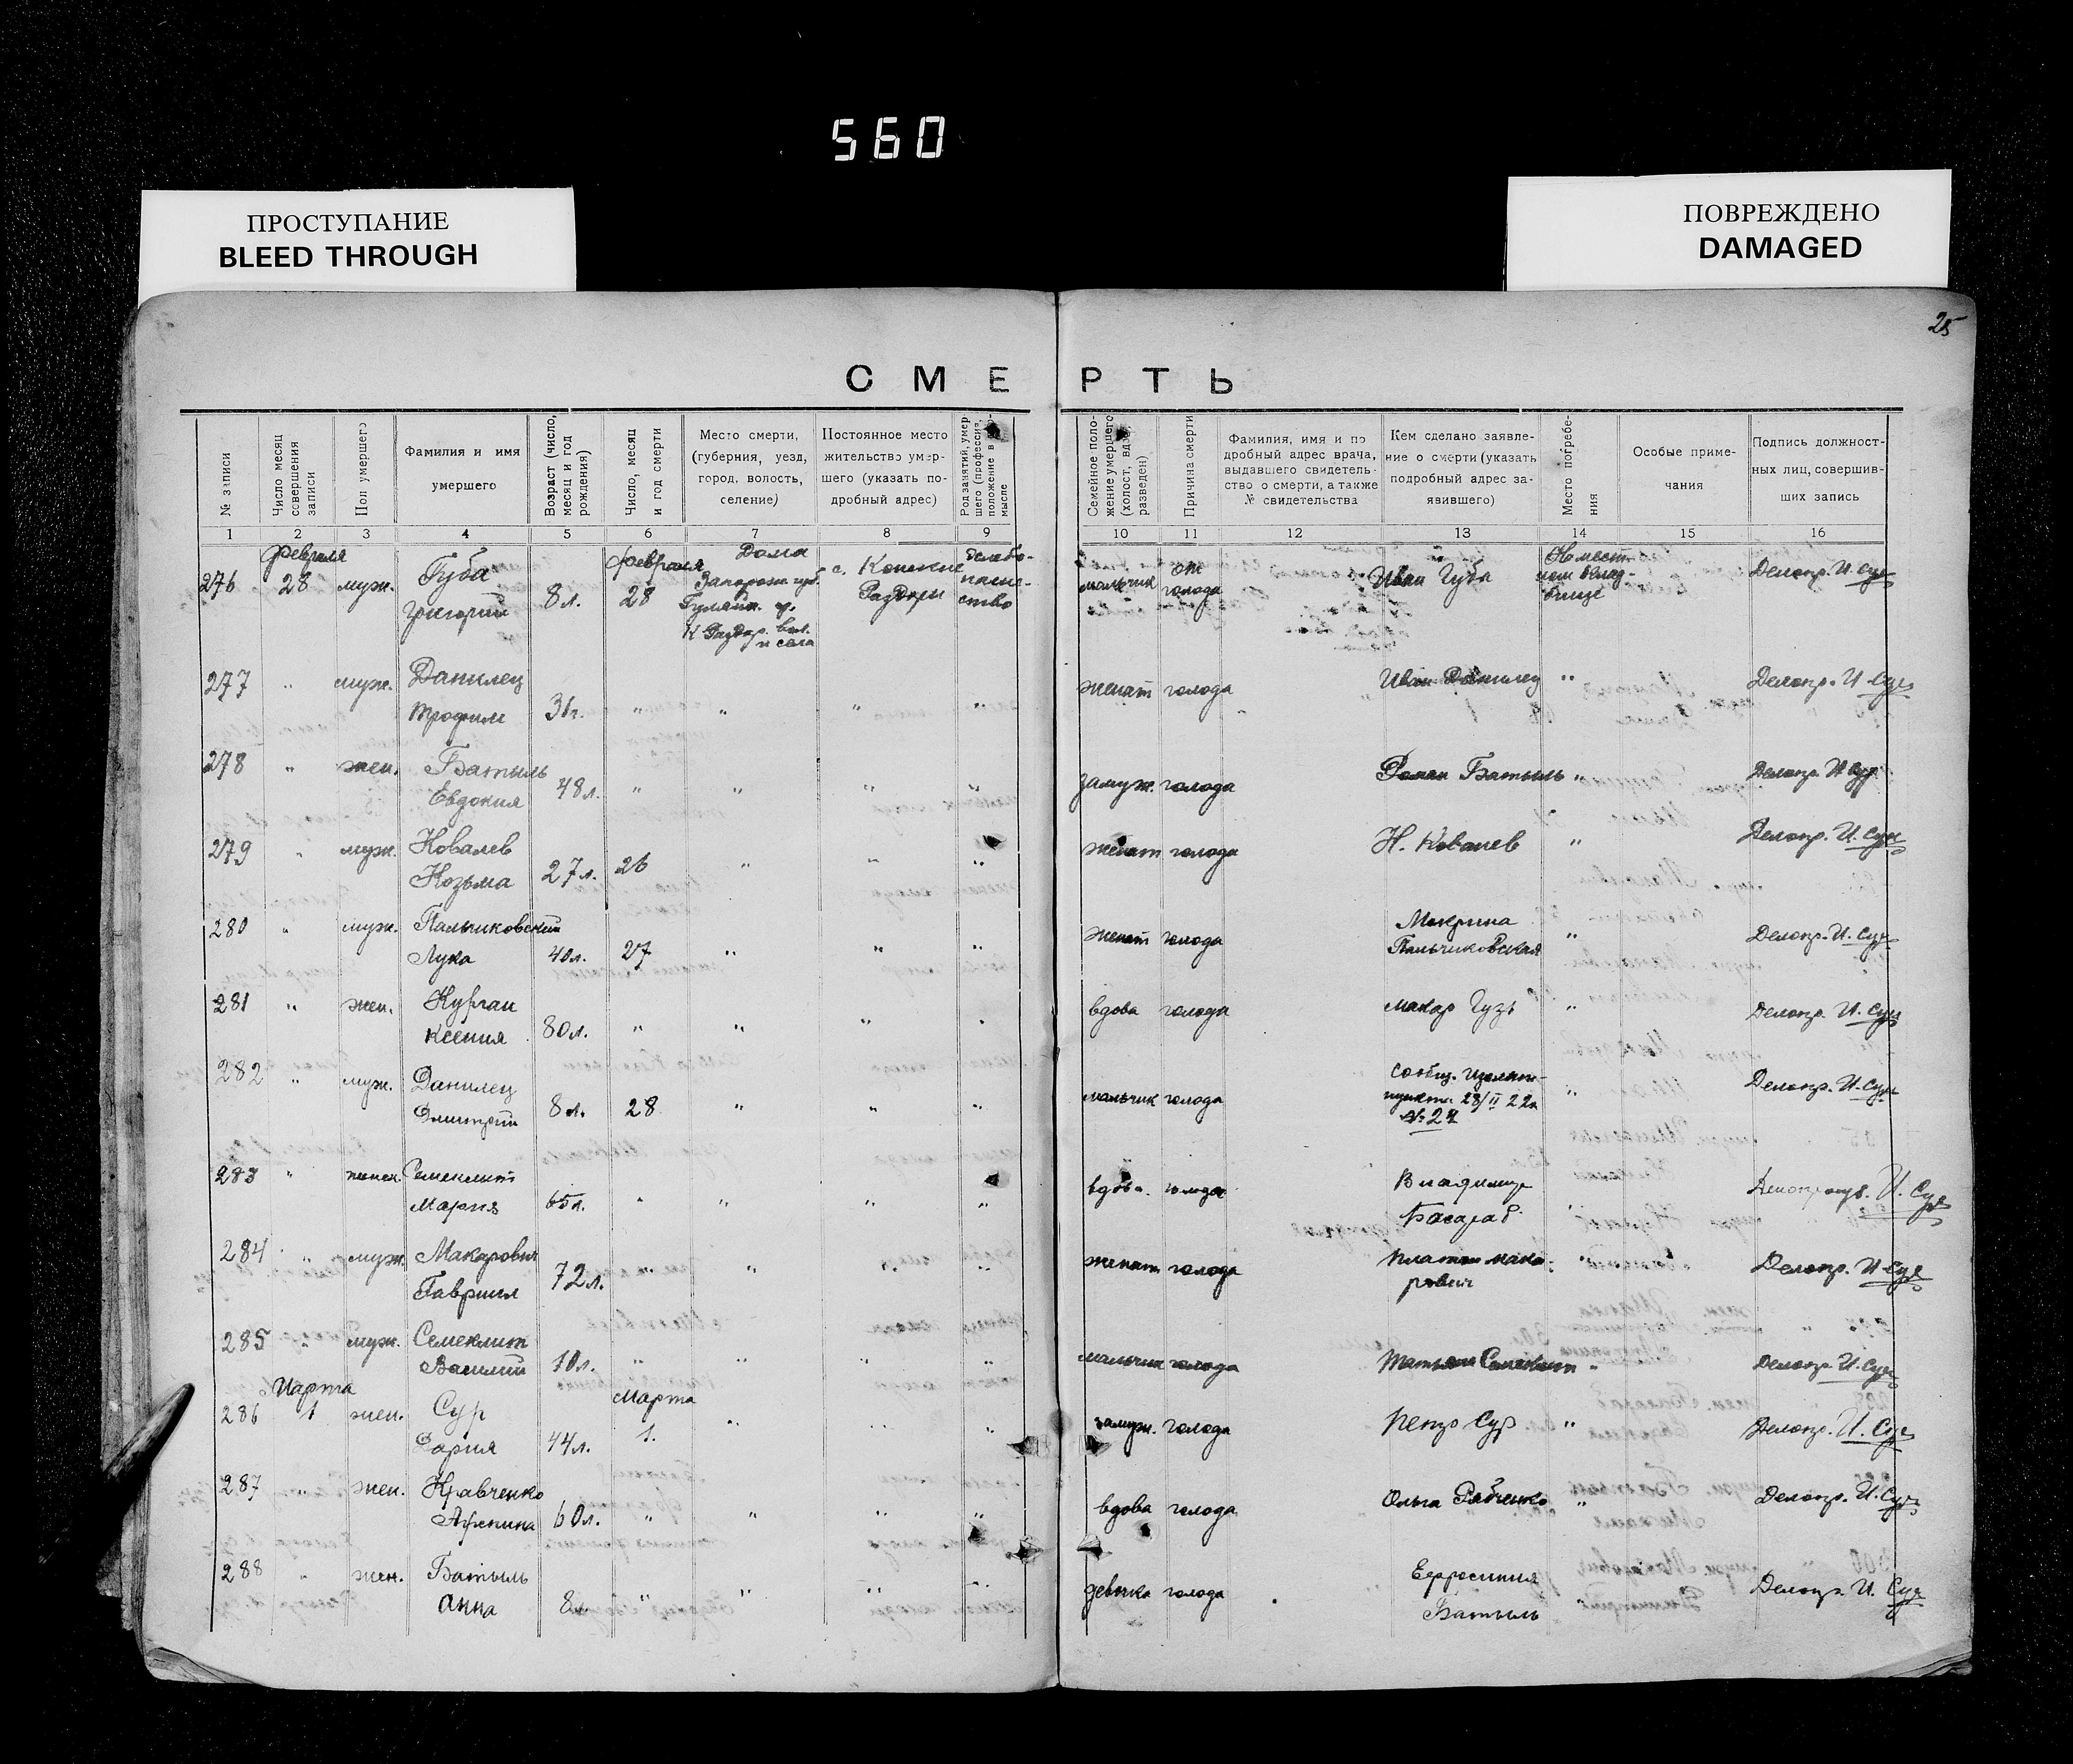 560
ПРОСТУПАНИЕ
BLEED THROUGH
ПОВРЕЖДЕНО
DAMAGED
25
СМЕРТЬ
№ записи
Число месяц совершения записи
Пол умершего
Фамилия и имя умершего
Возраст (число, месяц и год рождения)
Число, месяц и год смерти
Место смерти, (губерния, уезд, город, волость, селение)
Постоянное место жительство умершего (указать подробный адрес)
Род занятий, умершего (профессия, положение в мысле
Семейное положение умершего (холост, вдов, разведен)
Причина смерти
Фамилия, имя и подробный адрес врача, выдавшего свидетельство о смерти, а также № свидетельства
Кем сделано заявление о смерти (указать подробный адрес заявившего)
Место погребения
Особые примечания
Подпись должностных лиц, совершивших запись
1 2 3 4 5 6 7 8 9 10 11 12 13 14 15 16
276 февраля 28 муж. Губа Григорий 8 л. февраля 28 Дома Запорож. губ. Гуляйп. у. К Раздор. вол. и села с. Конские Раздоры хлебопашество мальчик от голода Иван Губа На местном кладбище Делопр. И. Сур
277 " муж. Данилец Трофим 36г. " " " " женат голода Иван Данилец " Делопр. И. Сур
278 " жен. Батыль Евдокия 48л. " " " " замуж. голода Роман Батыль " Делопр. И Сур
279 " муж. Ковалев Козьма 27л. 26 " " " женат голода Н. Ковалев " Делопр. И. Сур
280 " муж. Пальчиковский Лука 40л. 27 " " " женат голода Макрина Пальчиковская " Делопр. И. Сур
281 " жен. Курган Ксения 80л. " " " " вдова голода Макар Гузь " Делопр. И. Сур
282 " муж. Данилец Дмитрий 8л. 28 " " " мальчик голода сообщ. пункта 28/II 22г. " Делопр. И. Сур
283 " женск. Семеклит Мария 65л. " " " " вдова. голода Владимир Басараб " И. Сур
284 " муж. Макарович Гавриил 72л. " " " " женат голода Платон Макарович " Делопр. И Сур
285 " муж. Семеклит Василий 10л. " " " " мальчик голода Татьяна Семеклит " Делопр. И. Сур
286 Марта 1 жен. Сур Дария 44л. Марта 1. " " " замуж. голода Петр Сур " Делопр. И. Сур
287 " жен. Кравченко 60л. " " " " вдова голода Ольга " Делопр. И. Сур
288 " жен. Батыль Анна 8л. " " " " девочка голода Ефросиния Батыль " Делопр. И. Сур